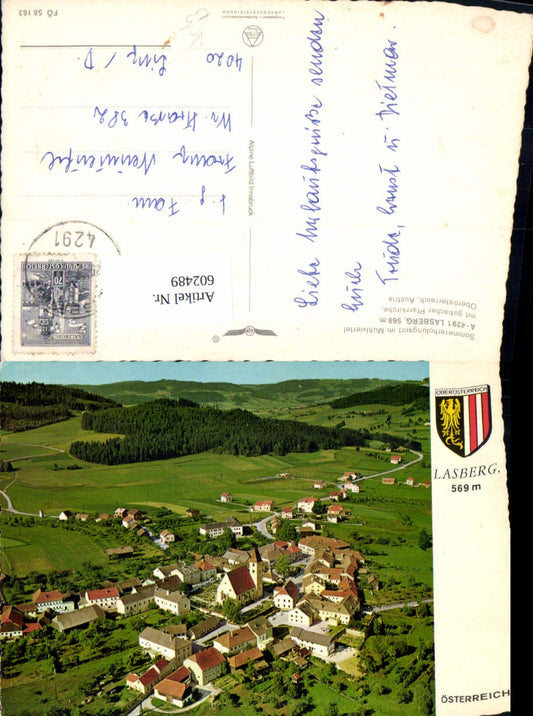 FÖ 58 163
Sommererholungsort im Mühlviertel
A-4291 LASBERG, 569 m
mit gotischer Pfarrkirche,
Oberösterreich, Austria
Liebe Urlaubsgrüße senden
Euch
Trude, Ernst u. Dietmar.
Alpine Luftbild Innsbruck
Fam.
Franz
4020
Linz / D.
4291
70
REPUBLIK ÖSTERREICH
Artikel Nr.
602489
OBERÖSTERREICH
LASBERG,
569 m
ÖSTERREICH